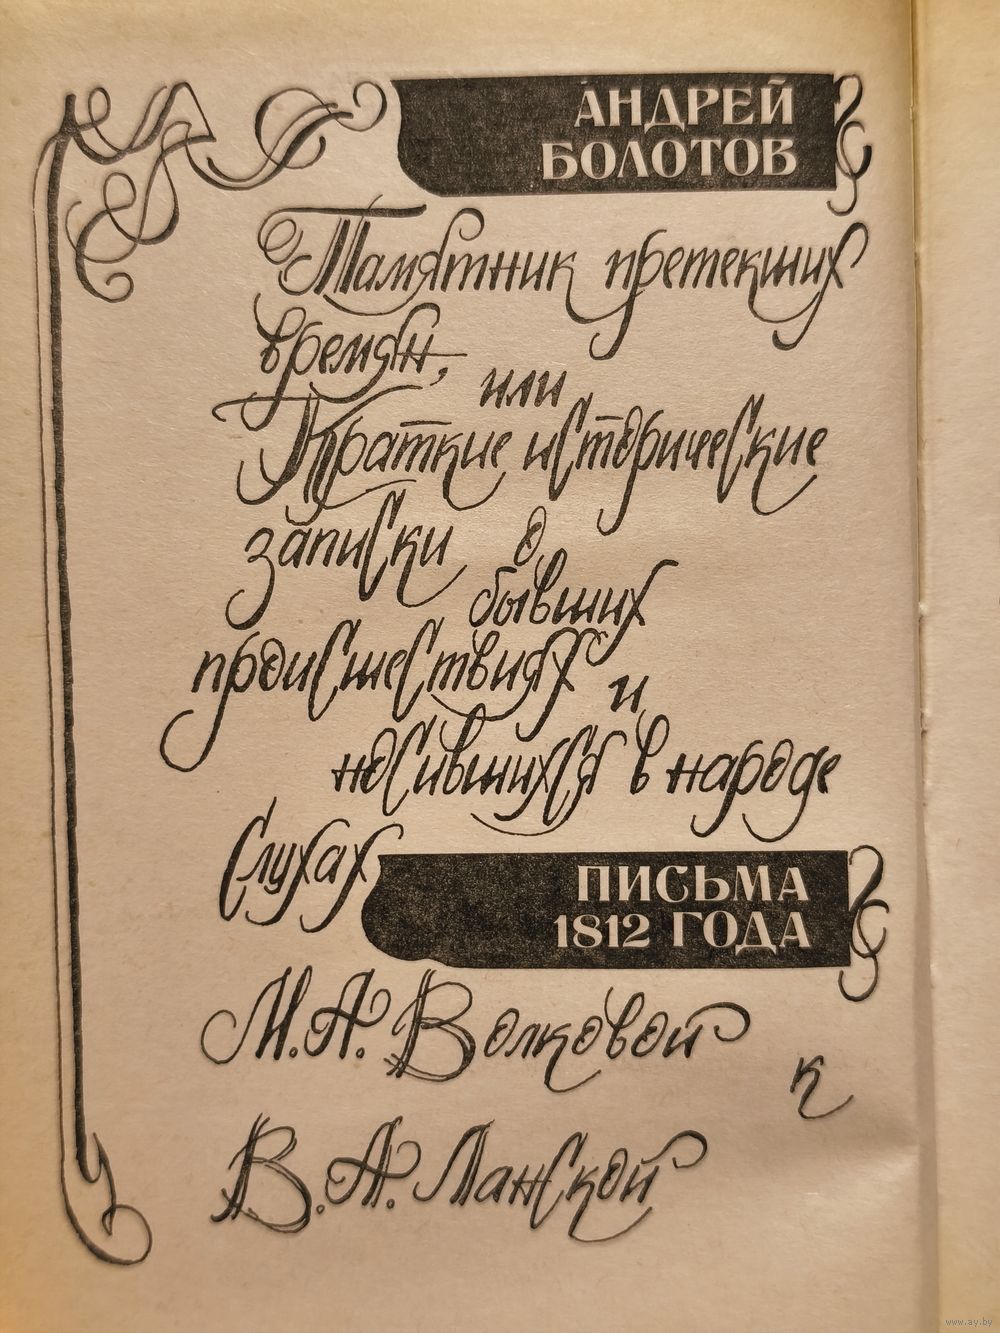 АНДРЕЙ
БОЛОТОВ
Памятник претекших
времян,
или
Краткие исторические
записки о
бывших
происшествиях и
носившихся в народе
слухах
ПИСЬМА
1812 ГОДА
М.А. Волковой
к
В.А. Ланской
www.ay.by